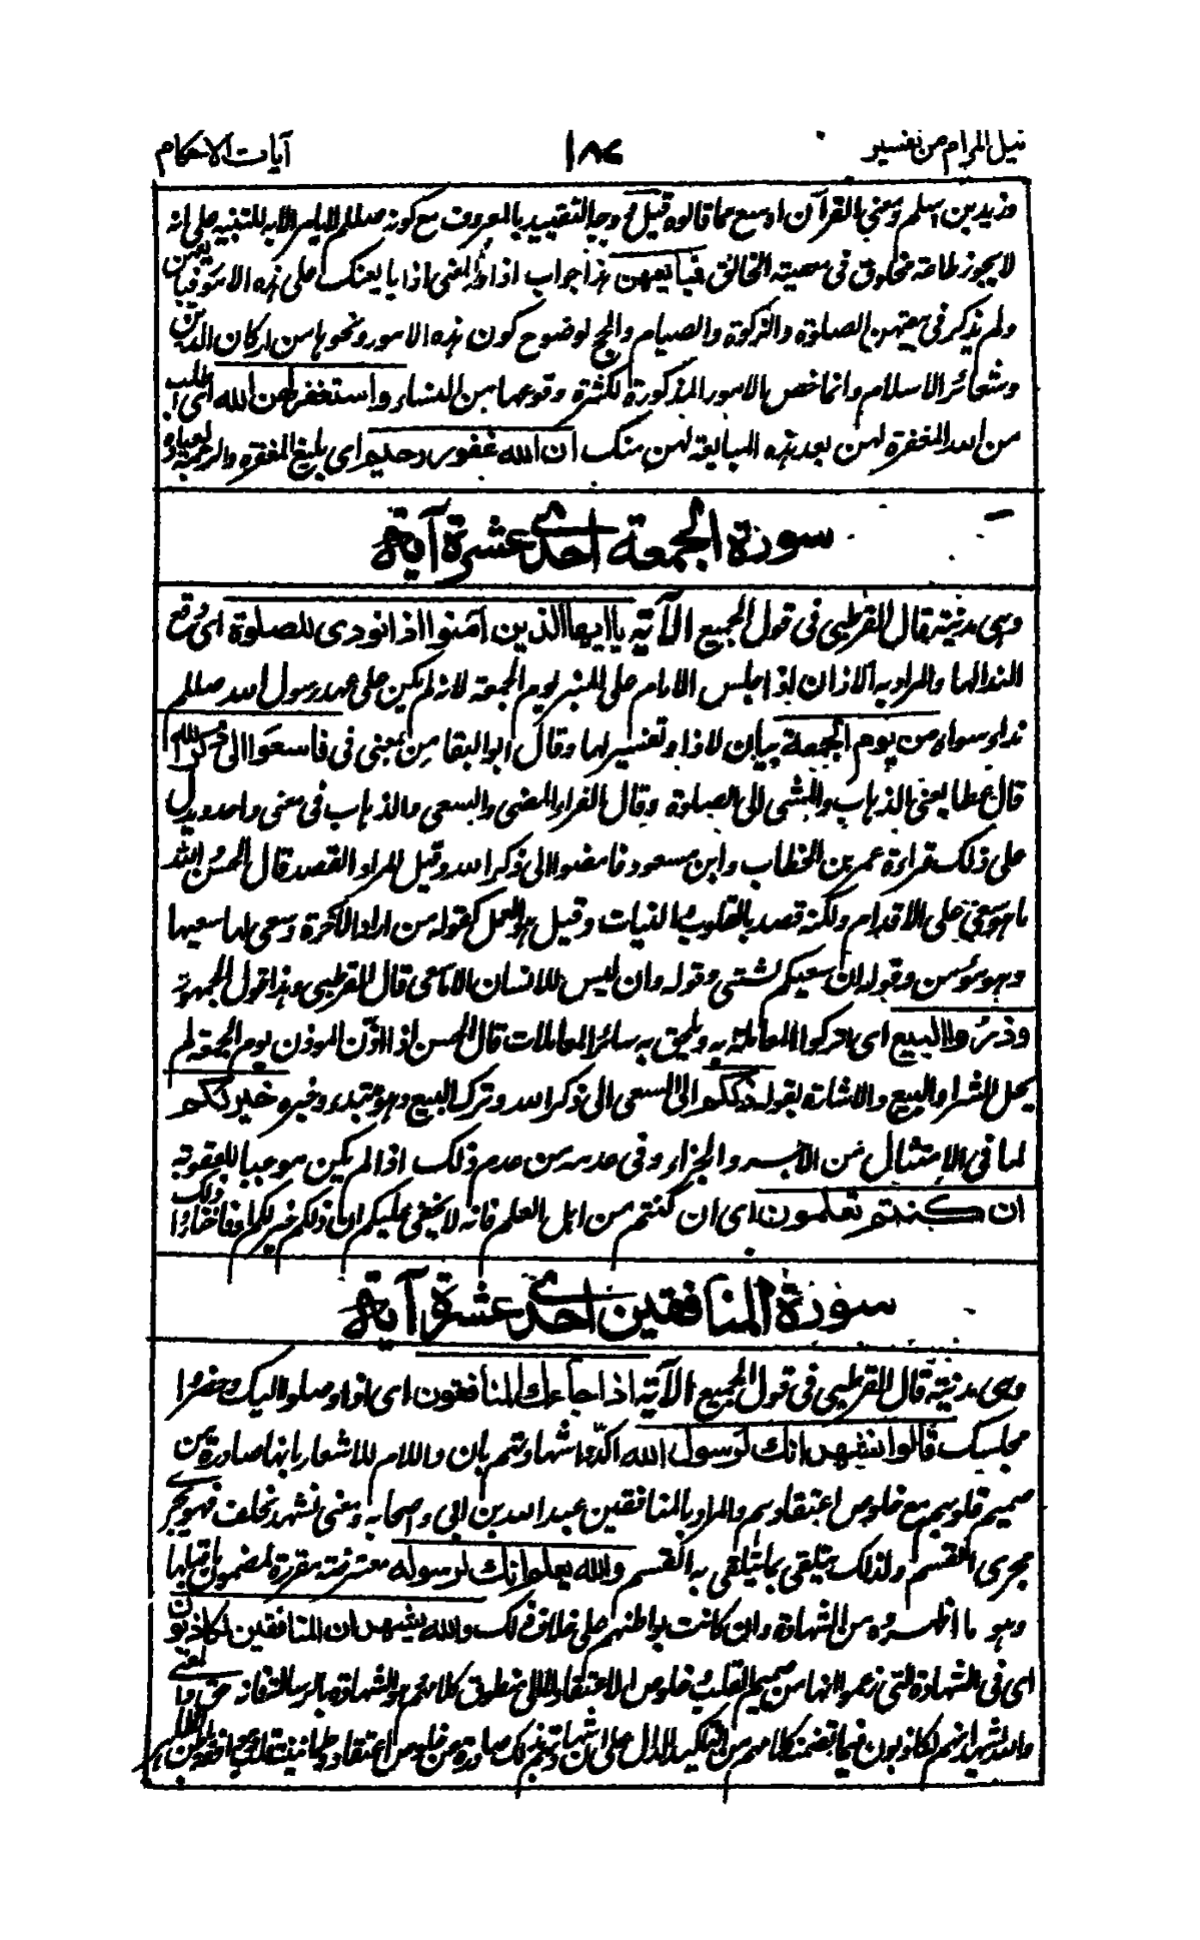 نيل المرام من تفسير ١٨٧ آيات الاحكام
وزيد بن اسلم ومعنى القرآن اوسع مما قالوه قيل ووجه التقييد بالمعروف مع كونه صللم لا يامر الا به للتنبيه على انه
لا يجوز طاعة مخلوق فى معصية الخالق فبايعهن هذا جواب اذا والمعنى اذا بايعنك على هذه الامور فبايعهن
ولم يذكر فى بيعتهن الصلوة والزكوة والصيام والحج لوضوح كون هذه الامور ونحوها من اركان الدين
وشعائر الاسلام وانما خص الامور المذكورة لكثرة وقوعها من النساء واستغفر لهن الله اى اطلب
من الله المغفرة لهن بعد هذه المبايعة لهن منك ان الله غفور رحيم اى بليغ المغفرة والرحمة لعباده
سورة الجمعة احدى عشرة آية
وهى مدنية قال القرطبى فى قول الجميع الآية يا ايها الذين آمنوا اذا نودى للصلوة اى وقع
النداء لها والمراد به الاذان اذا جلس الامام على المنبر يوم الجمعة لانه لم يكن على عهد رسول الله صللم
نداء سواه من يوم الجمعة بيان لاذا وتفسير لها وقال ابو البقا من بمعنى فى فاسعوا الى ذكر الله
قال عطا يعنى الذهاب والمشى الى الصلوة وقال الفراء المضى والسعى والذهاب فى معنى واحد ويدل
على ذلك قراءة عمر بن الخطاب وابن مسعود فامضوا الى ذكر الله وقيل المراد القصد قال الحسن والله
ما هو سعى على الاقدام ولكنه قصد بالقلوب والنيات وقيل هو العمل كقوله من اراد الآخرة وسعى لها سعيها
وهو مؤمن وقوله ان سعيكم لشتى وقوله وان ليس للانسان الا ما سعى قال القرطبى وهذا قول الجمهور
وذروا البيع اى اتركوا المعاملة به ويلحق به سائر المعاملات قال الحسن اذا اذن المؤذن يوم الجمعة لم
يحل الشراء والبيع والاشارة بقوله ذلكم الى السعى الى ذكر الله وترك البيع وهو مبتدء وخبره خير لكم
لما فى الامتثال من الاجر والجزاء وفى عدمه من عدم ذلك اذا لم يكن موجبا للعقوبة
ان كنتم تعلمون اى ان كنتم من اهل العلم فانه لا يخفى عليكم ان ذلكم خير لكم
سورة المنافقين احدى عشرة آية
وهى مدنية قال القرطبى فى قول الجميع الآية اذا جاءك المنافقون اى اذا وصلوا اليك وحضروا
مجلسك قالوا نشهد انك لرسول الله اكدوا شهادتهم بان واللام للاشعار بانها صادرة من
صميم قلوبهم مع خلوص اعتقادهم والمراد بالمنافقين عبد الله بن ابى واصحابه ومعنى نشهد نحلف فهو يجرى
مجرى القسم ولذلك يتلقى بما يتلقى به القسم والله يعلم انك لرسوله معترضة مقررة لمضمون ما قبلها
وهو ما اظهروه من الشهادة وان كانت بواطنهم على خلاف ذلك والله يشهد ان المنافقين لكاذبون
اى فى الشهادة التى زعموا انها من صميم القلب وخلوص الاعتقاد لا الى منطوق كلامهم وهو الشهادة بالرسالة فانه حق والمعنى
والله يشهد انهم لكاذبون فيما تضمنه كلامهم من التاكيد الدال على ان شهادتهم بذلك صادرة عن خلوص اعتقاد وطمانينة قلب وموافقة باطن لظاهر